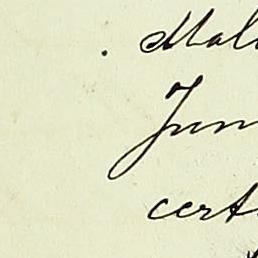 Mal
Jun
cert